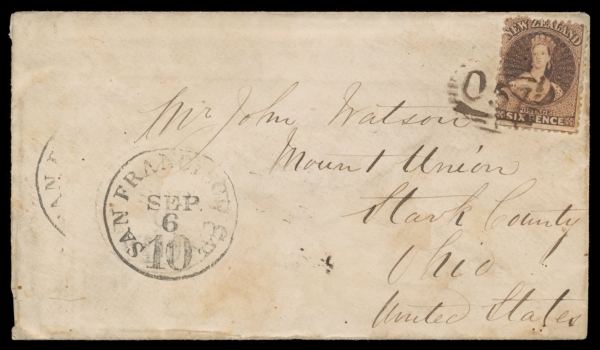 NEW ZEALAND
POSTAGE
SIX PENCE
Mr John Watson
Mount Union
Stark County
Ohio
United States
SAN FRANCISCO CAL.
SEP.
6
10
SAN F